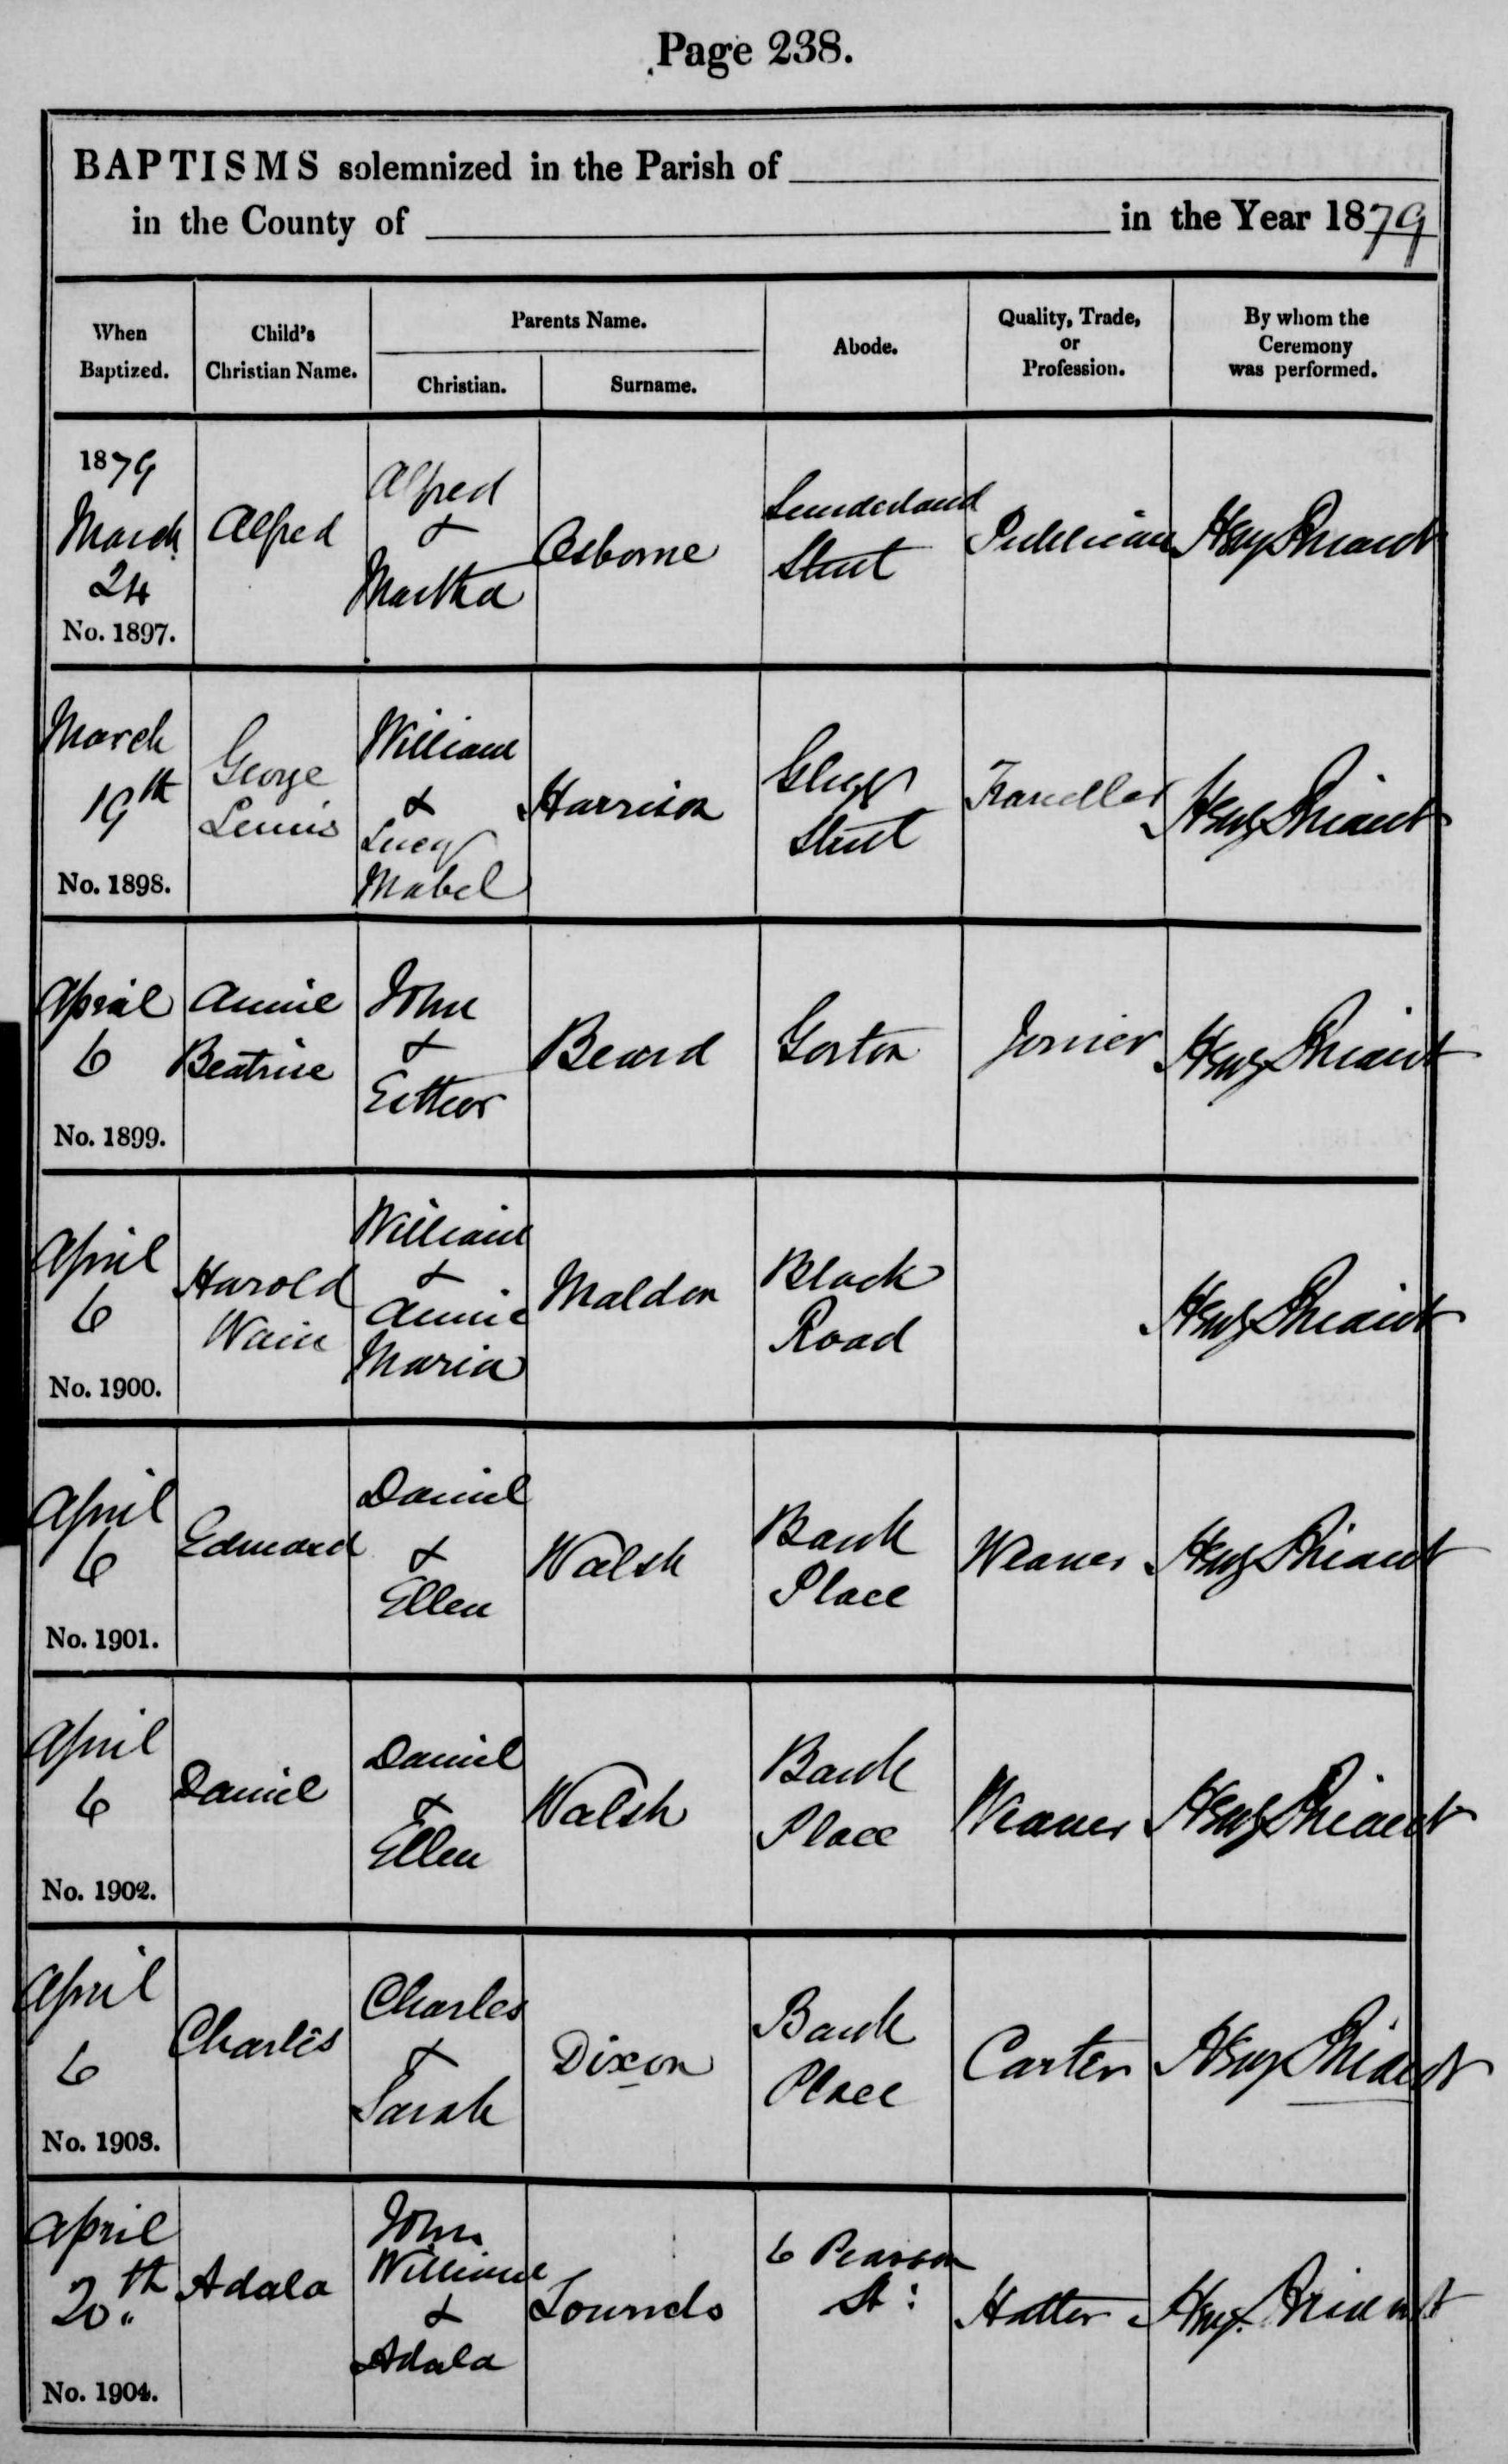 Page 238.
BAPTISMS solemnized in the Parish of
in the County of in the Year 1879
When Baptized.
Child's Christian Name.
Parents Name.
Christian.
Surname.
Abode.
Quality, Trade, or Profession.
By whom the Ceremony was performed.
1879
March
24
No. 1897.
Alfred
Alfred
&
Martha
Osborne
Sunderland
Street
Publican
Hny
March
19th
No. 1898.
George
Lewis
William
&
Lucy
Mabel
Harrison
Clegg
Street
Traveller
Hny
April
6
No. 1899.
Annie
Beatrice
John
&
Esther
Beard
Gorton
Joiner
Hny
April
6
No. 1900.
Harold
Wain
William
&
Annie
Maria
Maldon
Black
Road
Hny
April
6
No. 1901.
Edward
Daniel
&
Ellen
Walsh
Bank
Place
Weaver
Hny
April
6
No. 1902.
Daniel
Daniel
&
Ellen
Walsh
Bank
Place
Weaver
Hny
April
6
No. 1903.
Charles
Charles
&
Sarah
Dixon
Bank
Place
Carter
Hny
April
20th
No. 1904.
Adala
John
William
&
Adala
Lownds
6 Pearson
St:
Hatter
Hny.